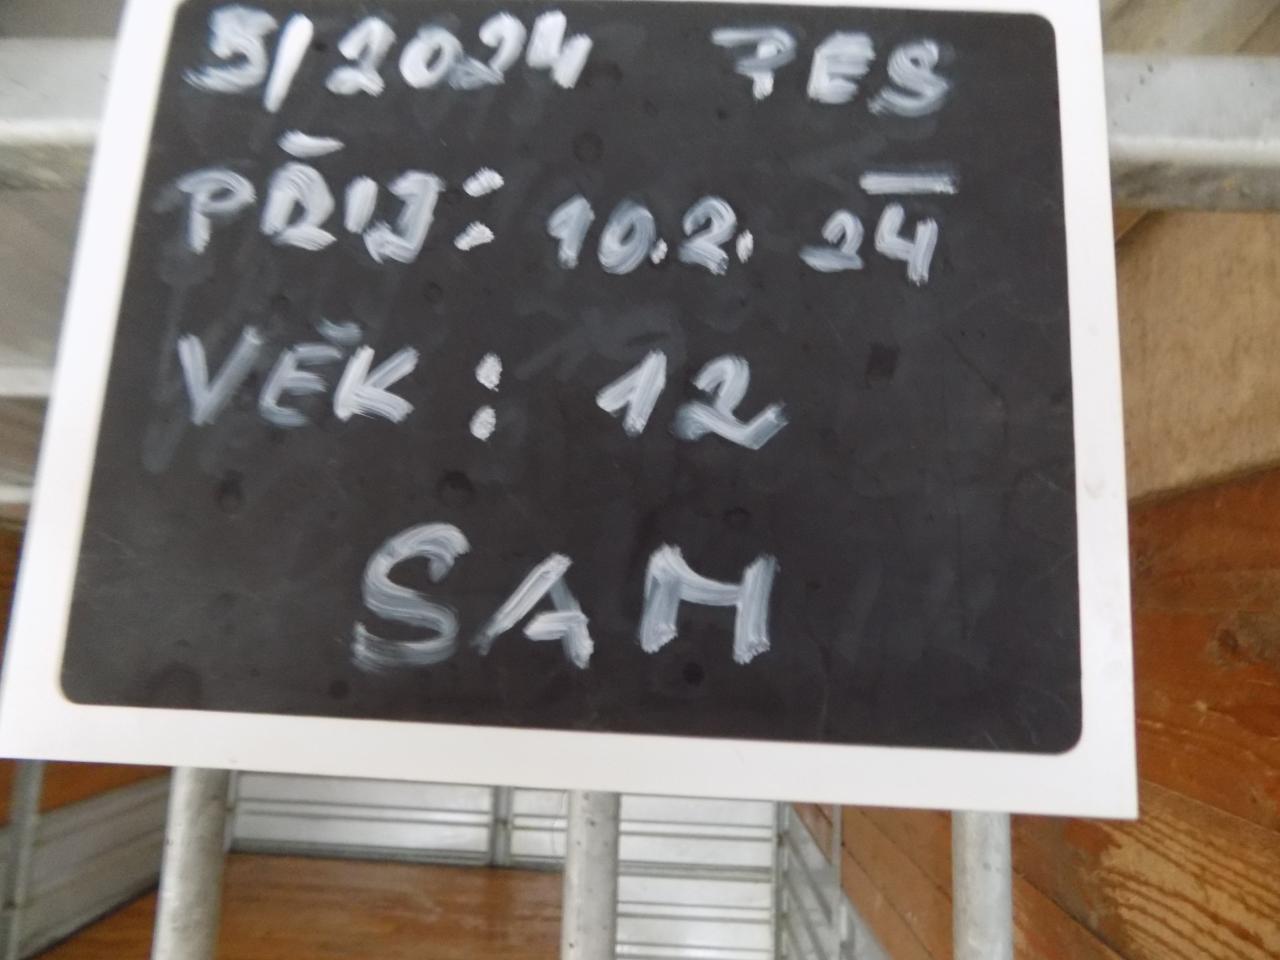 5/2024 PES
PŘIJ: 10.2. 24
VĚK: 12
SAM